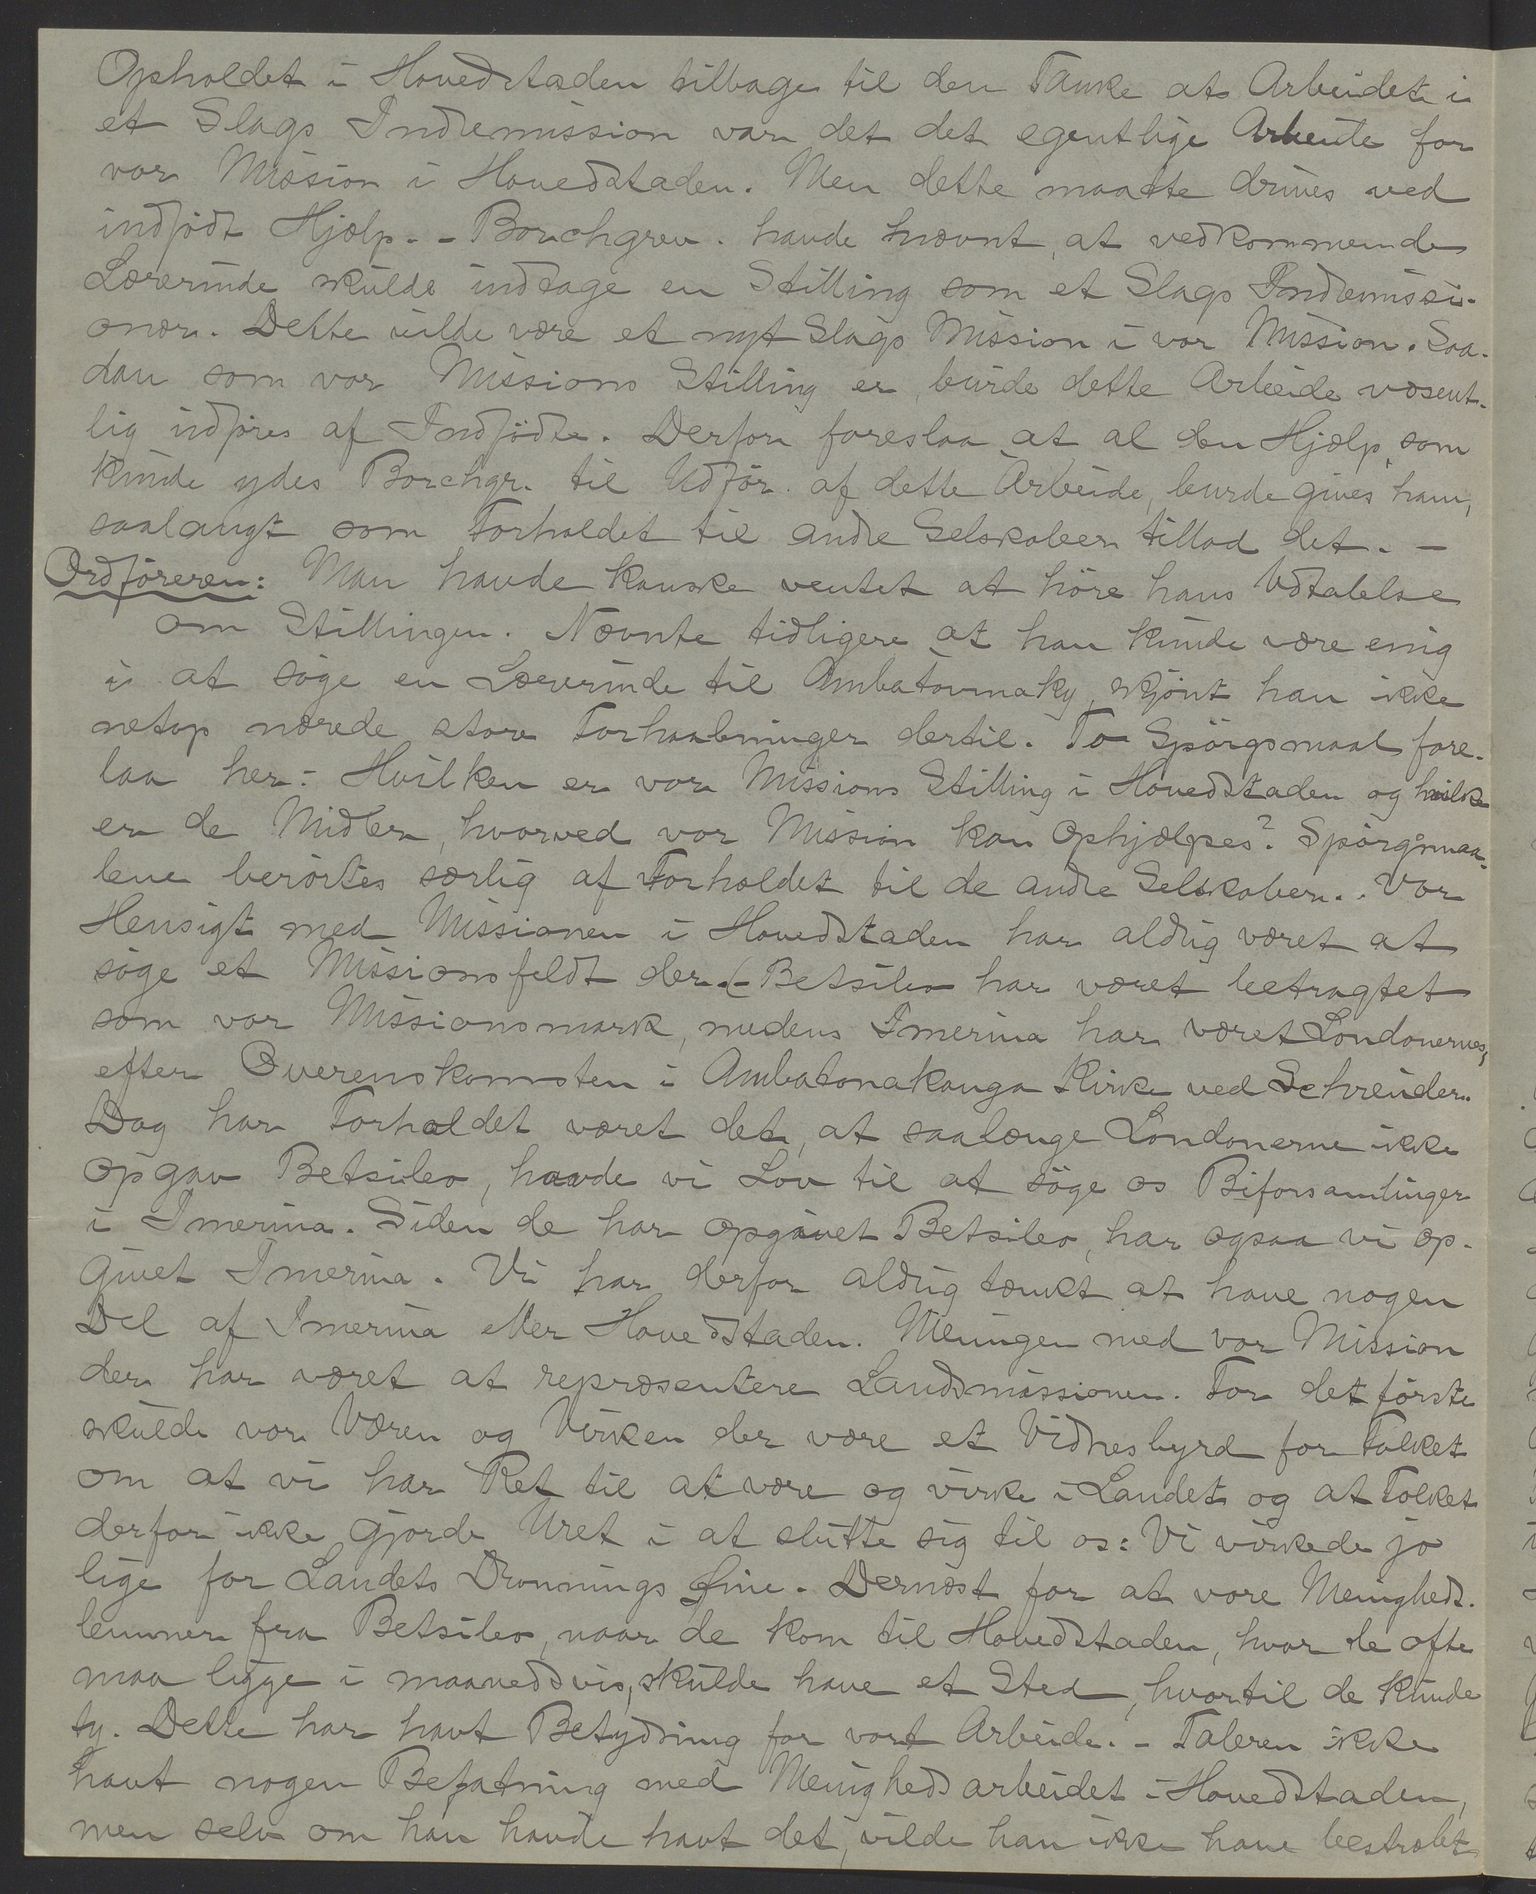 Opholdet i Hovedstaden tilbage til den Tanke at Arbeidet i
et Slags Indremission var det det egentlige Arbeide for
vor Mission i Hovedstaden. Men dette maatte drives ved
indfödt Hjælp. - Borchgrev. havde nævnt, at vedkommende
Lærerinde skulde indtage en Stilling som et Slags Indremissi-
onær. Dette vilde være et nyt Slags Mission i vor Mission. Saa-
dan som vor Missions Stilling er, burde dette Arbeide væsent-
lig udføres af Indfödte. Derfor foreslaa at al den Hjælp, som
kunde ydes Borchgr. til Udför. af dette Arbeide, burde gives ham,
saalangt som Forholdet til andre Selskaber tillod det. -
Ordföreren: Man havde kanske ventet at höre hans Udtalelse
om Stillingen. Nævnte tidligere at han kunde være enig
i at söge en Lærerinde til Ambatovinaky, skjönt han ikke
netop nærede store Forhaabninger dertil. To Spörgsmaal fore-
laa her: Hvilken er vor Missions Stilling i Hovedstaden og hvilke
er de Midler, hvorved vor Mission kan ophjælpes? Spörgsmaa-
lene berörtes særlig af Forholdet til de andre Selskaber. Vor
Hensigt med Missionen i Hovedstaden har aldrig været at
söge et Missionsfeldt der. (Betsileo har været betragtet
som vor Missionsmark, medens Imerina har været Londonernes,
efter Overenskomsten i Ambatonakanga Kirke ved Schreuder.
Dog har Forholdet været det, at saalænge Londonerne ikke
opgav Betsileo, havde vi Lov til at söge os Biforsamlinger
i Imerina. Siden de har opgivet Betsileo, har ogsaa vi op-
givet Imerina. Vi har derfor aldrig tænkt at have nogen
Del af Imerina eller Hovedstaden. Meningen med vor Mission
der har været at repræsentere Landsmissionen. For det förste
skulde vor Væren og Virken der være et Vidnesbyrd for Folket
om at vi har Ret til at være og virke i Landet og at Folket
derfor ikke gjorde Uret i at slutte sig til os: Vi virkede jo
lige for Landets Dronnings Öine. Dernæst for at vore Menigheds-
lemmer fra Betsileo, naar de kom til Hovedstaden, hvor de ofte
maa ligge i maanedsvis, skulde have et Sted, hvortil de kunde
ty. Dette har havt Betydning for vort Arbeide. - Taleren ikke
havt nogen Befatning med Menighedsarbeidet i Hovedstaden,
men selv om han havde havt det, vilde han ikke have bestræbt